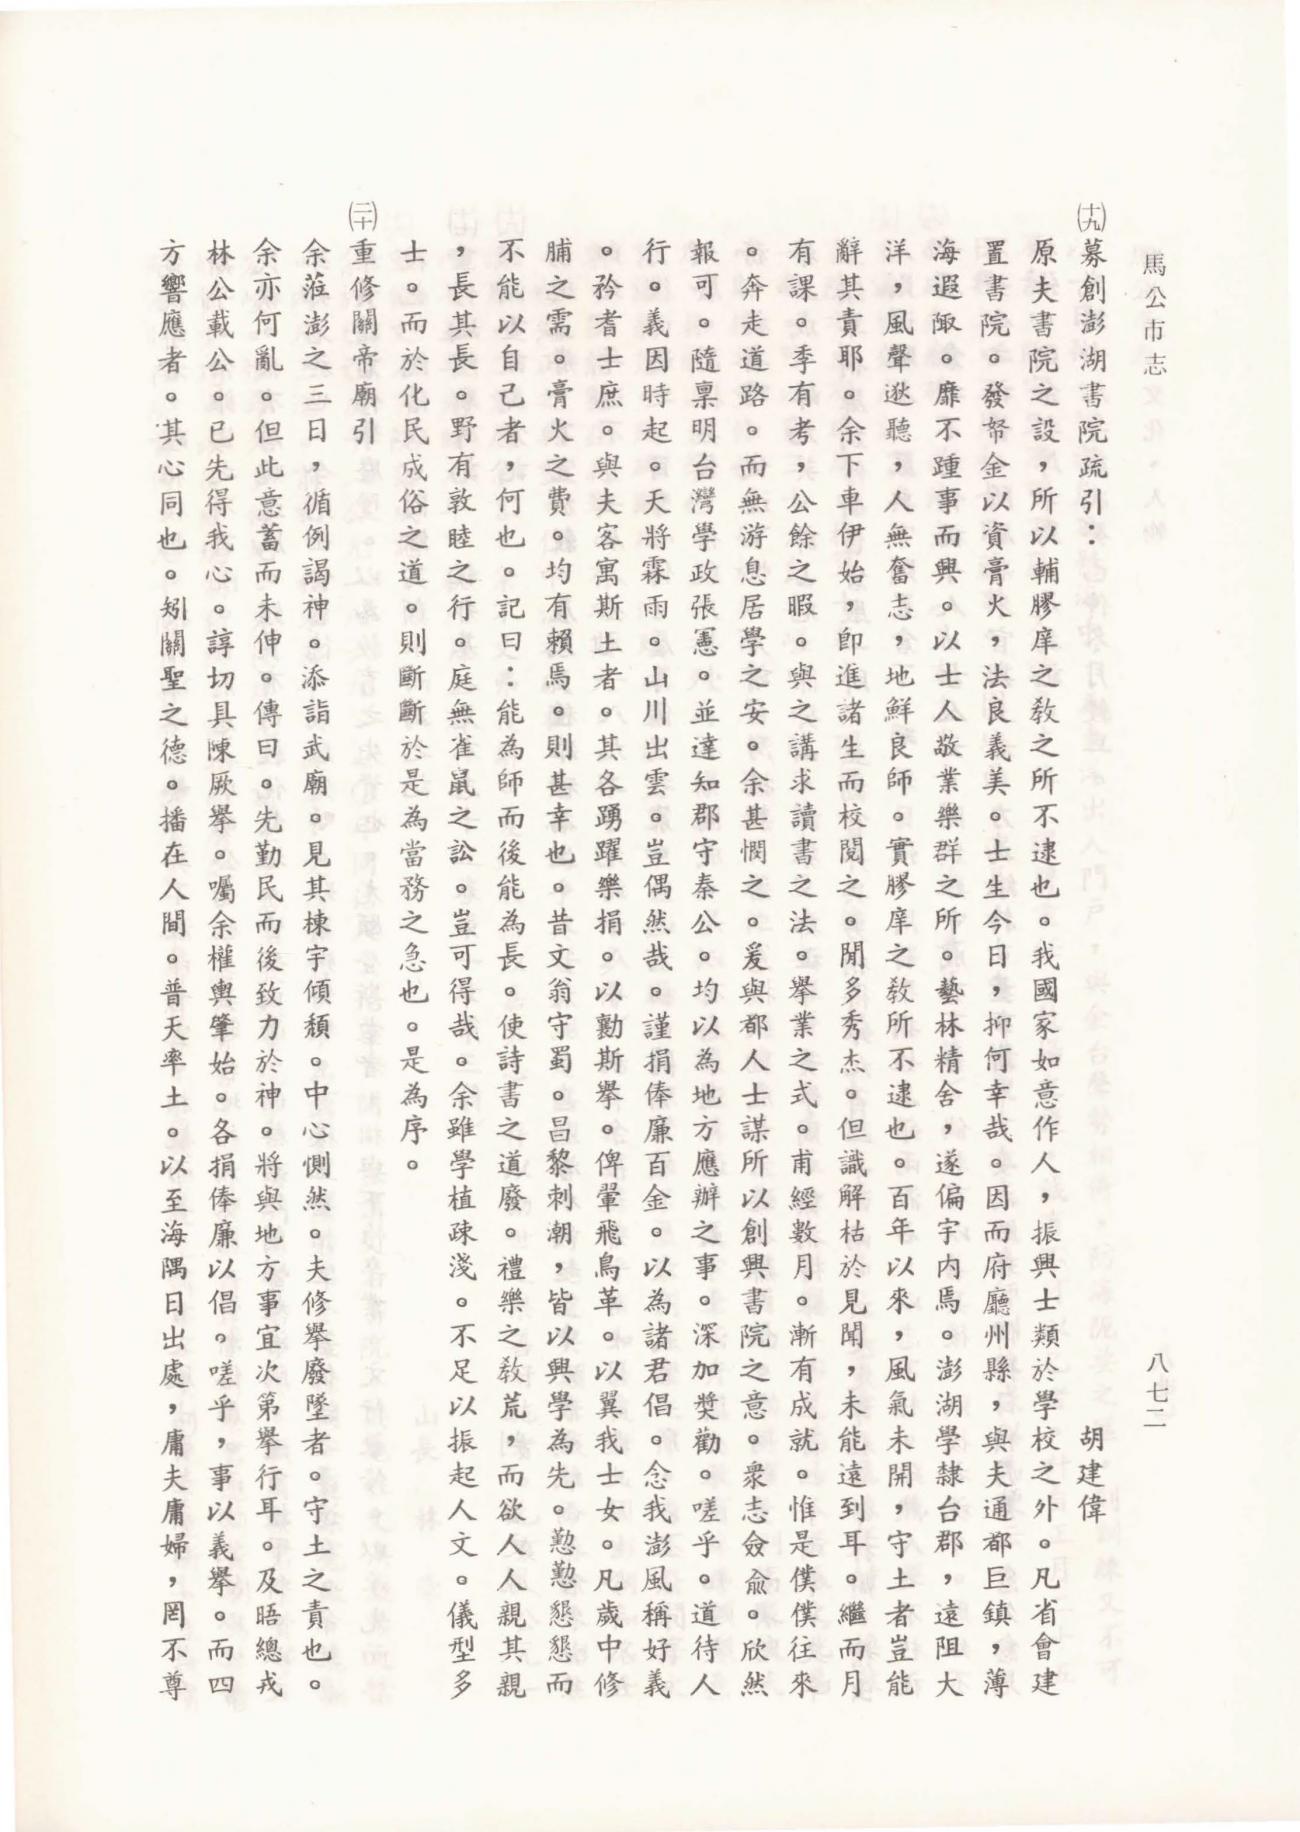 馬公市志
八七二
㈩九募創澎湖書院疏引：　胡建偉
原夫書院之設，所以輔膠庠之教之所不逮也。我國家如意作人，振興士類於學校之外。凡省會建
置書院。發帑金以資膏火，法良義美。士生今日，抑何幸哉。因而府廳州縣，與夫通都巨鎮，薄
海遐陬。靡不踵事而興。以士人敬業樂群之所。藝林精舍，遂偏宇內焉。澎湖學隸台郡，遠阻大
洋，風聲逖聽，人無奮志，地鮮良師。實膠庠之教所不逮也。百年以來，風氣未開，守土者豈能
辭其責耶。余下車伊始，即進諸生而校閱之。閒多秀杰。但識解枯於見聞，未能遠到耳。繼而月
有課。季有考，公餘之暇。與之講求讀書之法。舉業之式。甫經數月。漸有成就。惟是僕僕往來
。奔走道路。而無游息居學之安。余甚憫之。爰與都人士謀所以創興書院之意。衆志僉俞。欣然
報可。隨稟明台灣學政張憲。並達知郡守秦公。均以為地方應辦之事。深加獎勸。嗟乎。道待人
行。義因時起。天將霖雨。山川出雲。豈偶然哉。謹捐俸廉百金。以為諸君倡。念我澎風稱好義
。矜耆士庶。與夫客寓斯土者。其各踴躍樂捐。以勷斯舉。俾翬飛鳥革。以翼我士女。凡歲中修
脯之需。膏火之費。均有賴焉。則甚幸也。昔文翁守蜀。昌黎刺潮，皆以興學為先。懃懃懇懇而
不能以自己者，何也。記曰：能為師而後能為長。使詩書之道廢。禮樂之教荒，而欲人人親其親
，長其長。野有敦睦之行。庭無雀鼠之訟。豈可得哉。余雖學植疎淺。不足以振起人文。儀型多
士。而於化民成俗之道。則斷斷於是為當務之急也。是為序。
㈡十重修關帝廟引
余蒞澎之三日，循例謁神。添詣武廟。見其棟宇傾頹。中心惻然。夫修舉廢墜者。守土之責也。
余亦何亂。但此意蓄而未伸。傳曰。先勤民而後致力於神。將與地方事宜次第舉行耳。及晤總戎
林公載公。已先得我心。諄切具陳厥舉。囑余權輿肇始。各捐俸廉以倡。嗟乎，事以義舉。而四
方響應者。其心同也。矧關聖之德。播在人間。普天率土。以至海隅日出處，庸夫庸婦，罔不尊